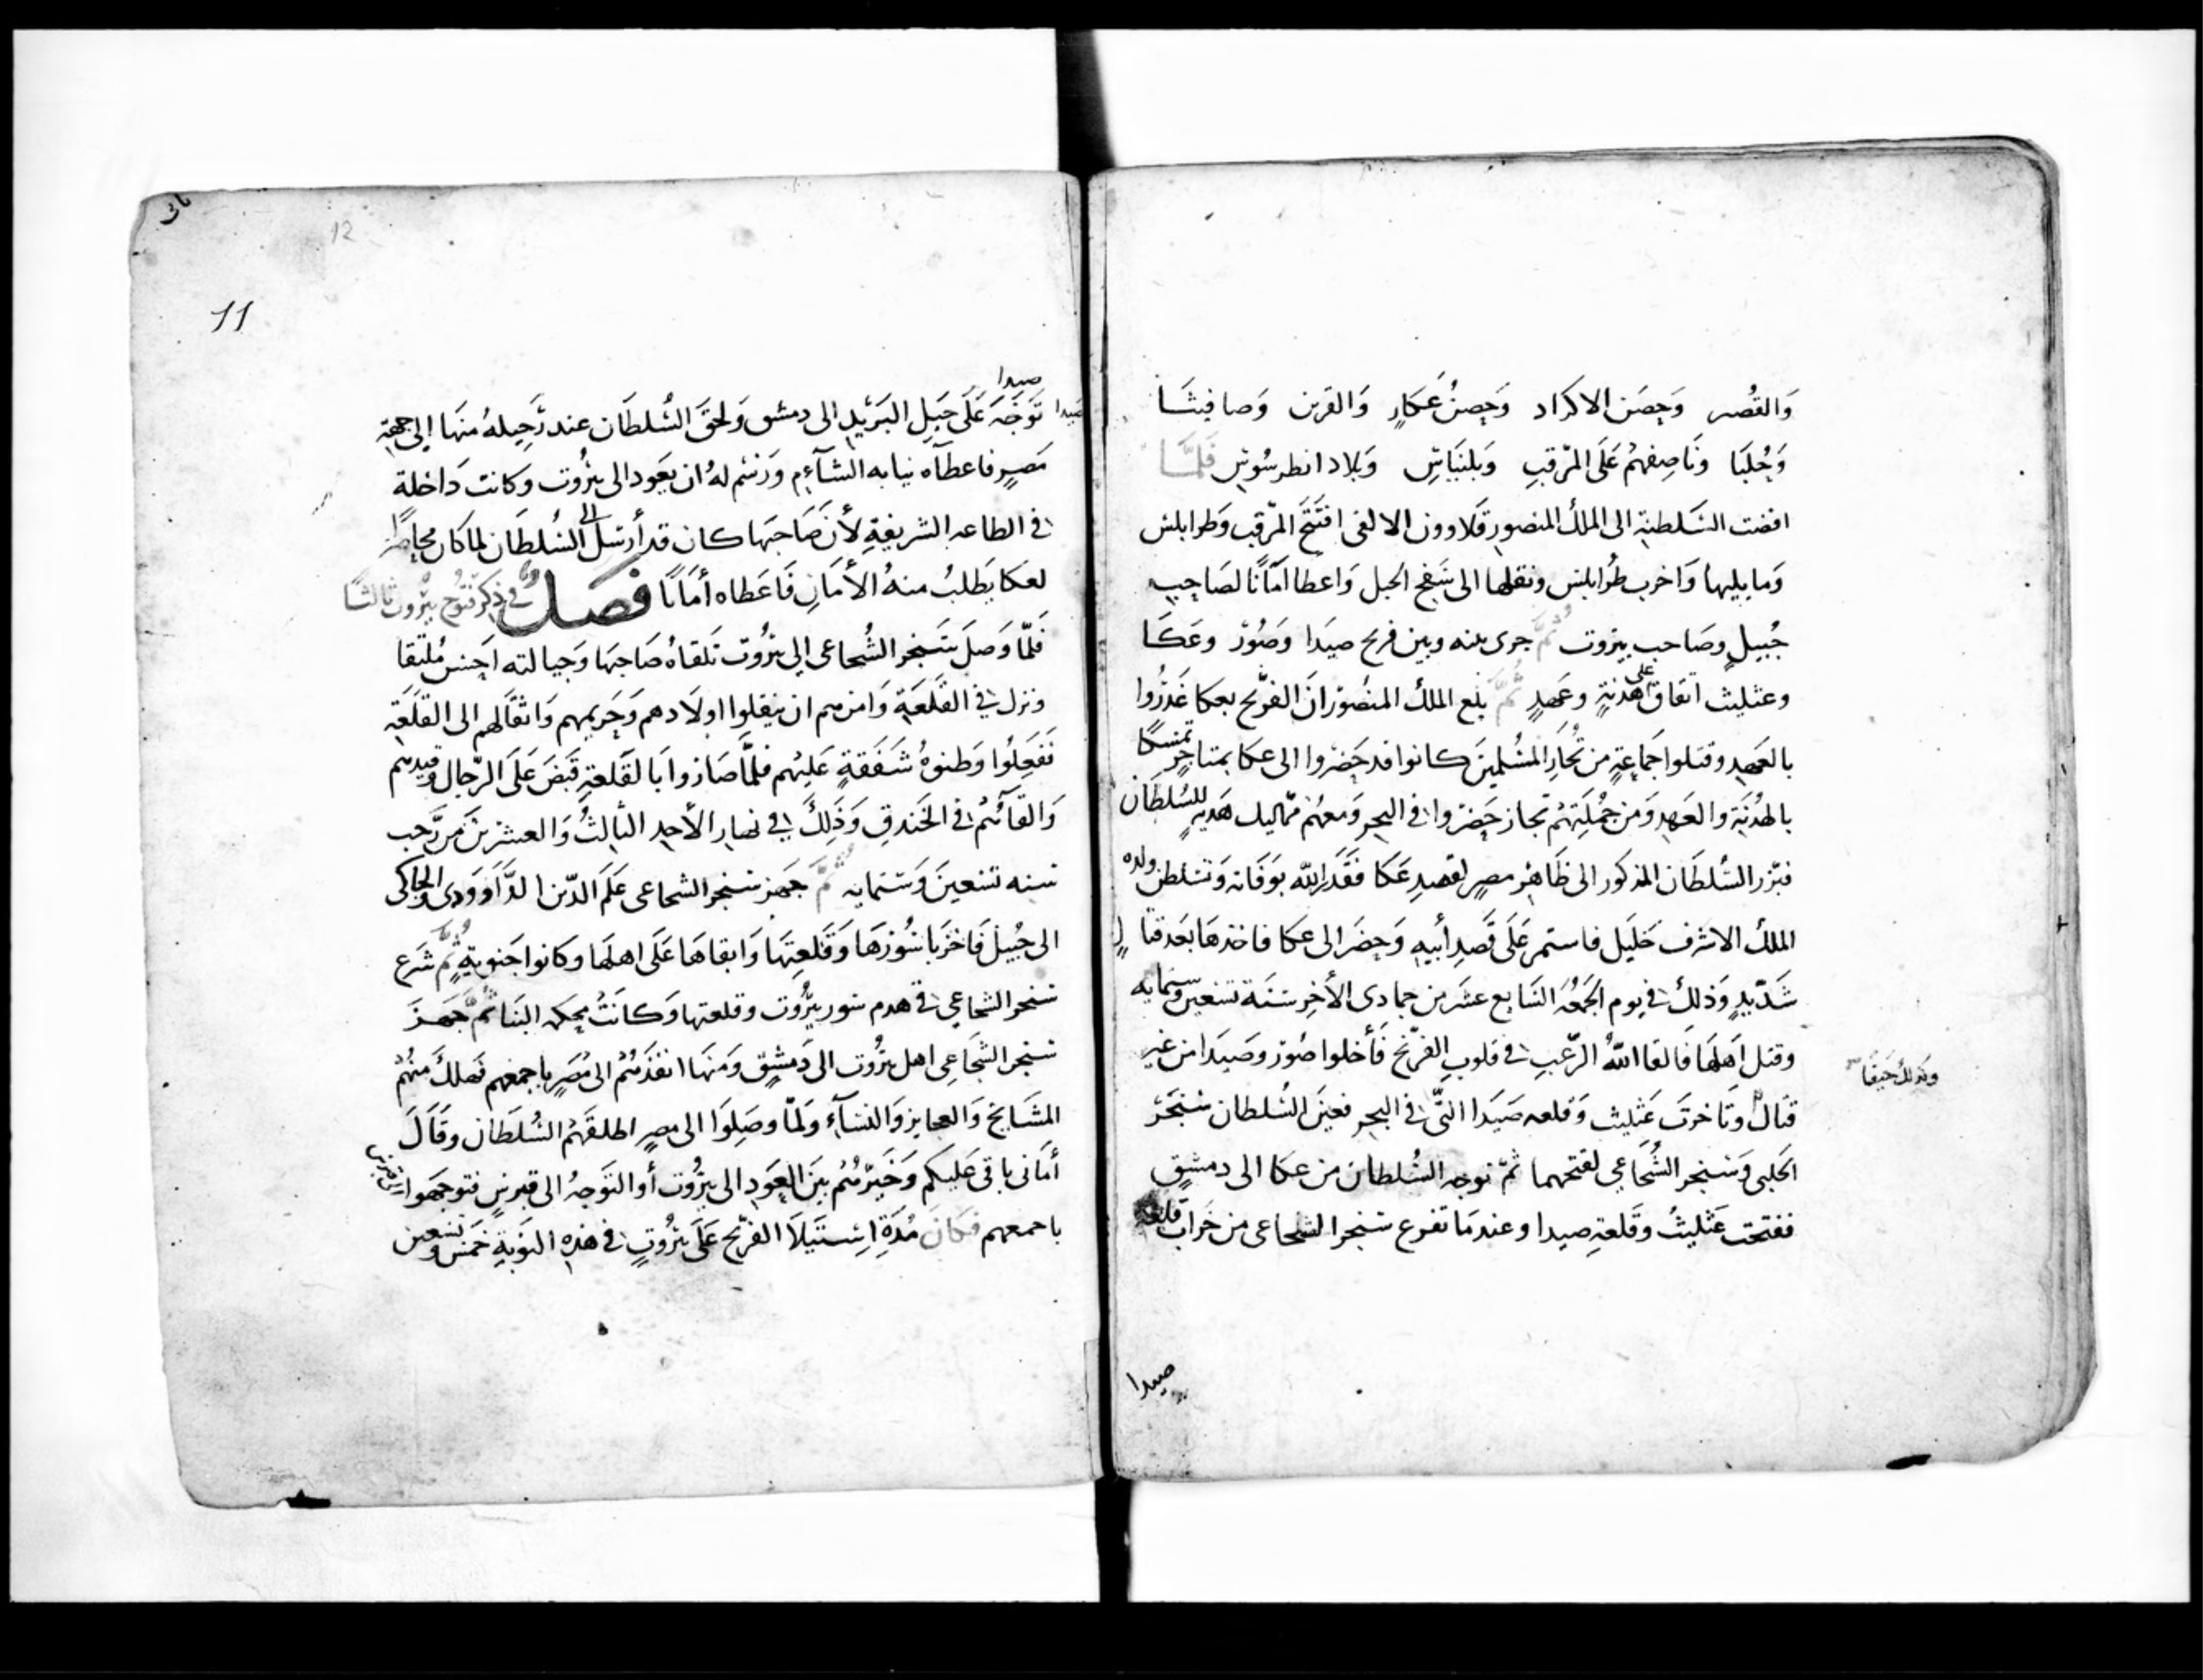 وَالقُصَير وَحِصن الاكراد وَحِصنُ عَكارٍ وَالقرين وَصافيثَا
وَحُلبَا ونَاصِفهُم عَلَى المَرقبِ وَبلنيَاسِ وَبلاد انطرسُوسِ فَلمَّا
افضت السَلطنة الى الملك المنصور قلاوون الالفى افتَتَح المَرقب وَطرابلس
وَما يليها وَاخرب طُرابلس ونقلها الى سَفح الجبل وَاعطا امَانًا لصَاحِبِ
جُبيلٍ وصَاحب بيروت ثُمَّ جرى بينه وبين فرنج صيَدا وَصُوْر وعَكَا
وعثليث اتفاق على هدنةٍ وعَهدٍ ثُمَّ بلغ الملك المنصُور انَ الفرَنج بعكا غَدَرُوا
بالعَهد وقتلوا جَمَاعةٍ من تُجّارِ المسُلمينَ كانوا قد حَضرُوا الى عكا بمتاجرٍ تمسكًا
بالهدُنَةِ والعَهدِ وَمن جُملَتِهم تجار حَضرُوا فى البحر وَمعهُم مماليك هَديةٍ للسُلطَان
فبرّز السُلطَان المذكور الى ظَاهرْ مصر لقصدِ عَكا فَقَدرَ اللّه بوَفَاته وَتسَلطن ولده
الملك الاشرف خَليل فاستمر عَلَى قَصدِ أبيهِ وَحضَر الى عكا فاخذهَا بعَد قتا لٍ
شَدّيدٍ وَذلك فى يوم الجَمُعَة السَابع عَشَر من جمادى الأخِر سَنَة تسَعين وستمايه
وقتل اَهلَهَا فَالقا اللّهُ الرّعبِ فى قلوبِ الفرَنج فَأخلوا صُوْر وصَيَدا من غير
وكذلك حَيفَا
قتال وتَاخرتَ عَثليث وَقلعه صَيَدا التَى فى البحر فعيَن السُلطان سَنجَر
الحَلبى وَسَنجر الشُجَاعى لفتحهما ثمّ توجه السُلطان من عكا الى دمشقٍ
ففتحت عَثليثُ وقَلعةِ صيدا وعندمَا تفرغ سَنجر الشجاعى من خَراب قلعة
صيدا
11
12
صيدا
صَيدا تَوَجَّهَ عَلَى خيَل البَرَيْدِ الى دمشق وَلحقَ السُلطَان عند رَحِيلهُ منهَا إلى جهة
مَصرٍ فاعطآه نيابه الشآءم وَرَسَم لهُ ان يعَود الى بيرُوت وكانت دَاخلة
فى الطاعه الشريفةِ لأن صَاحبَها كان قد أرسَل الى السُلطَان لما كان محاصرًا
لعكا يَطلبُ منهُ الأمَانِ فَاعَطاه أمَانًا فَصلٌ فى ذكر فتوُح بيرُوت ثالثًا
فَلمّا وَصَلَ سَنجر الشُجاعى إلى بيرُوت تلقاهُ صَاحبهَا وَخيالته اَحِسن مُلتقا
ونزل فى القَلعَةِ وَامرَهم ان ينقلوا اولَادهم وَحَريمهم وَاثقَالهم الى القَلعَةِ
فَفَعِلُوا وَظنوهُ شَفَقةٍ عَليهُم فلمَّا صَاروا بَالقَلعةِ قَبَضَ عَلَى الرّجال وقيدهم
وَالقآئهُم فى الخَندقِ وَذَلِكَ فى نهار الأحدِ الثالثُ وَالعشرينَ من رَّجب
سنه تسَعينَ وَستمايه ثُمَّ جَهز سَنجر الشجاعى عَلَم الدّين الدَّاوَودى والجاكى
الى جُبيلَ فَاخرَبا سُورَهَا وَقَلعِتهَا وَابقاهَا عَلَى اهلَها وكانوا جَنوية ثُمَّ شَرع
سَنجر الشجاعى فى هدم سور بيُروت وقلعتها وَكانَتْ محكمه البنَا ثُمَّ جَهَزَ
سَنجر الشجَاعِى اهل بيرُوت الى دَمشقٍ وَمنهَا انفذَهُم الى مُصَرٍ باجمعهم فهلكَ مَنهُم
المشَايخ وَالعجايز وَالنسَآءِ وَلمّا وصَلِوَا الى مصرٍ اطلقَهُم السُلطان وقَالَ
أمَانى باقى عَليكم وَخَيرَهُم بيَن العَودِ الى بيرُوت أو التوَجهُ الى قبرسٍ فتوجهَوا الى قبرس
باجمعهم فكانَ مُدَةِ اِستَيلَا الفرَنج عَلَى بيرُوتٍ فى هذهِ النوَبةِ خمَس وتسَعين